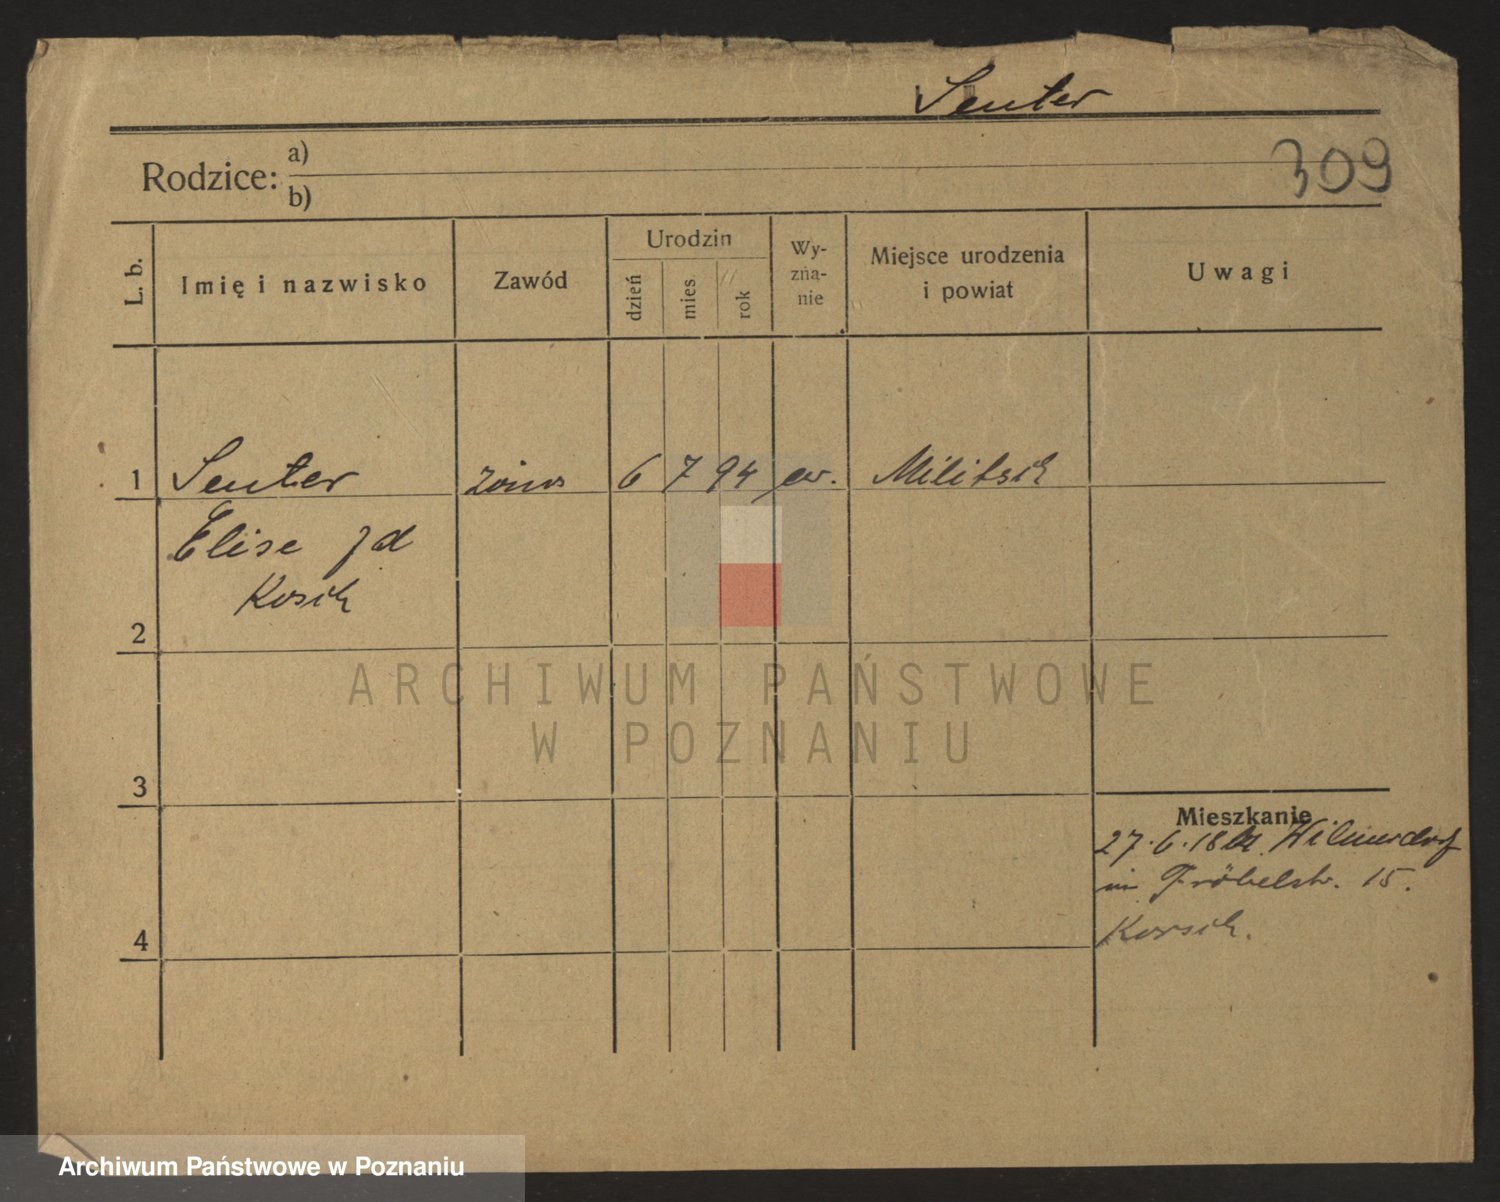 Senter
Rodzice: a)
b)
309
L. b.
Imię i nazwisko
Zawód
Urodzin
dzień
mies.
rok
Wy-
zna-
nie
Miejsce urodzenia
i powiat
Uwagi
1 Senter 6 7 94 ew. Militsch
Elise
2
3
4
Mieszkanie
27.6.18 Wilmersdorf
Fröbelstr. 15.
ARCHIWUM PAŃSTWOWE
W POZNANIU
Archiwum Państwowe w Poznaniu